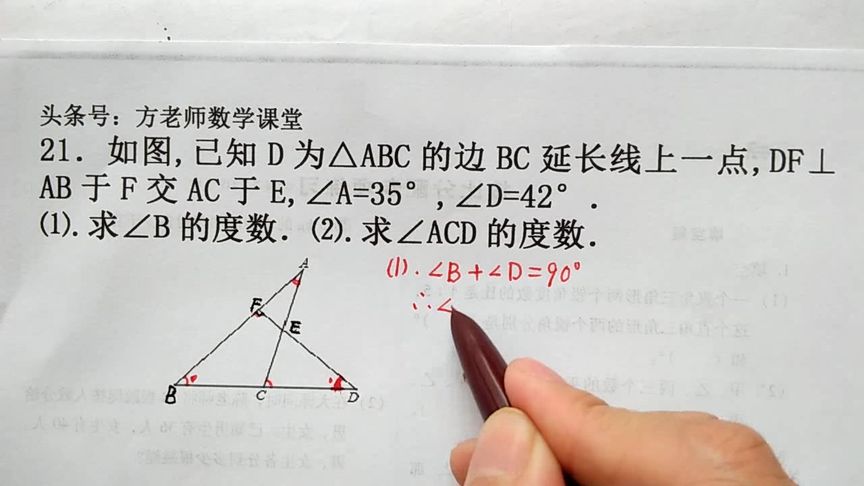 头条号：方老师数学课堂
21．如图,已知 D 为△ABC 的边 BC 延长线上一点,DF⊥
AB 于 F 交 AC 于 E,∠A=35°,∠D=42°.
⑴.求∠B 的度数．⑵.求∠ACD 的度数．
A
F
E
B
C
D
(1).∠B+∠D=90°
∴∠